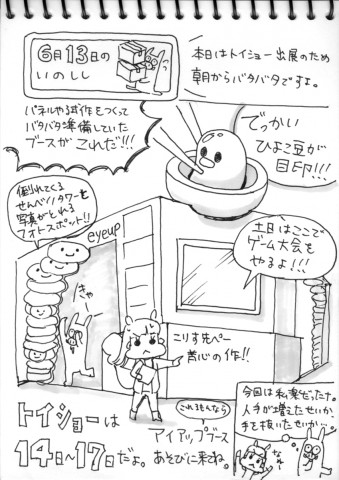 6月13日の
いのしし
本日はトイショー出展のため
朝からバタバタですよ。
パネルやら試作をつくって
バタバタ準備していた
ブースがこれだ!!!
でっかい
ひよこ豆が
目印!!!
倒れてくる
せんべいタワーを
写真がとれる
フォトスポット!!
eyeup
土日はここで
ゲーム大会を
やるよ!!!
きゃー
こりす先ぺー
苦心の作!!
トイショーは
14日〜17日だよ。
これよもんなら
アイアップブース
あそびに来てね
今回は私楽だったな。
人手が増えたせいか、
手を抜いたせいか…。